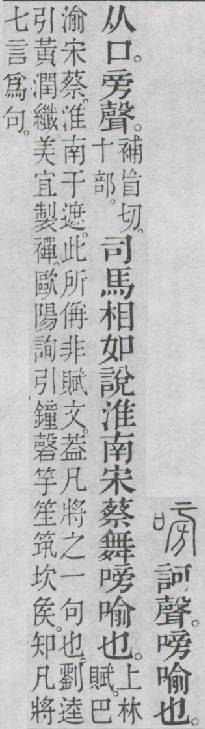 嗙 訶聲。嗙喻也。
从口。㫄聲。補盲切。十部。司馬相如說淮南宋蔡舞嗙喻也。上林賦。巴
渝宋蔡。淮南于遮。此所偁非賦文。葢凡將之一句也。劉逵
引黃潤纖美宜製襌。歐陽詢引鐘磬竽笙筑坎矦。知凡將
七言爲句。